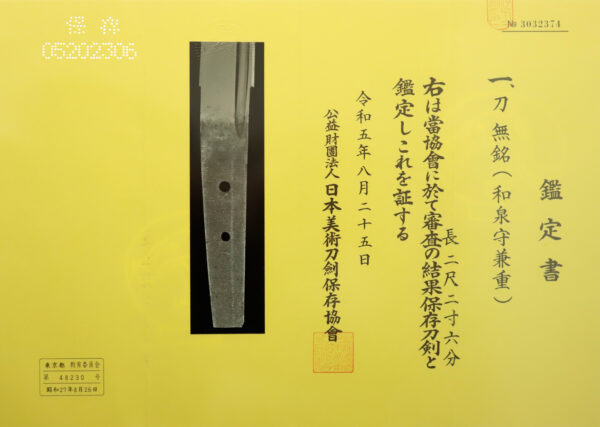 № 3032374
鑑定書
一、刀 無銘(和泉守兼重)
長 二尺二寸六分
右は當協會に於て審査の結果保存刀剣と
鑑定しこれを証する
令和五年八月二十五日
公益財團法人 日本美術刀劍保存協會
保存
05202306
東京都 教育委員会
第 48230 号
昭和27年8月26日